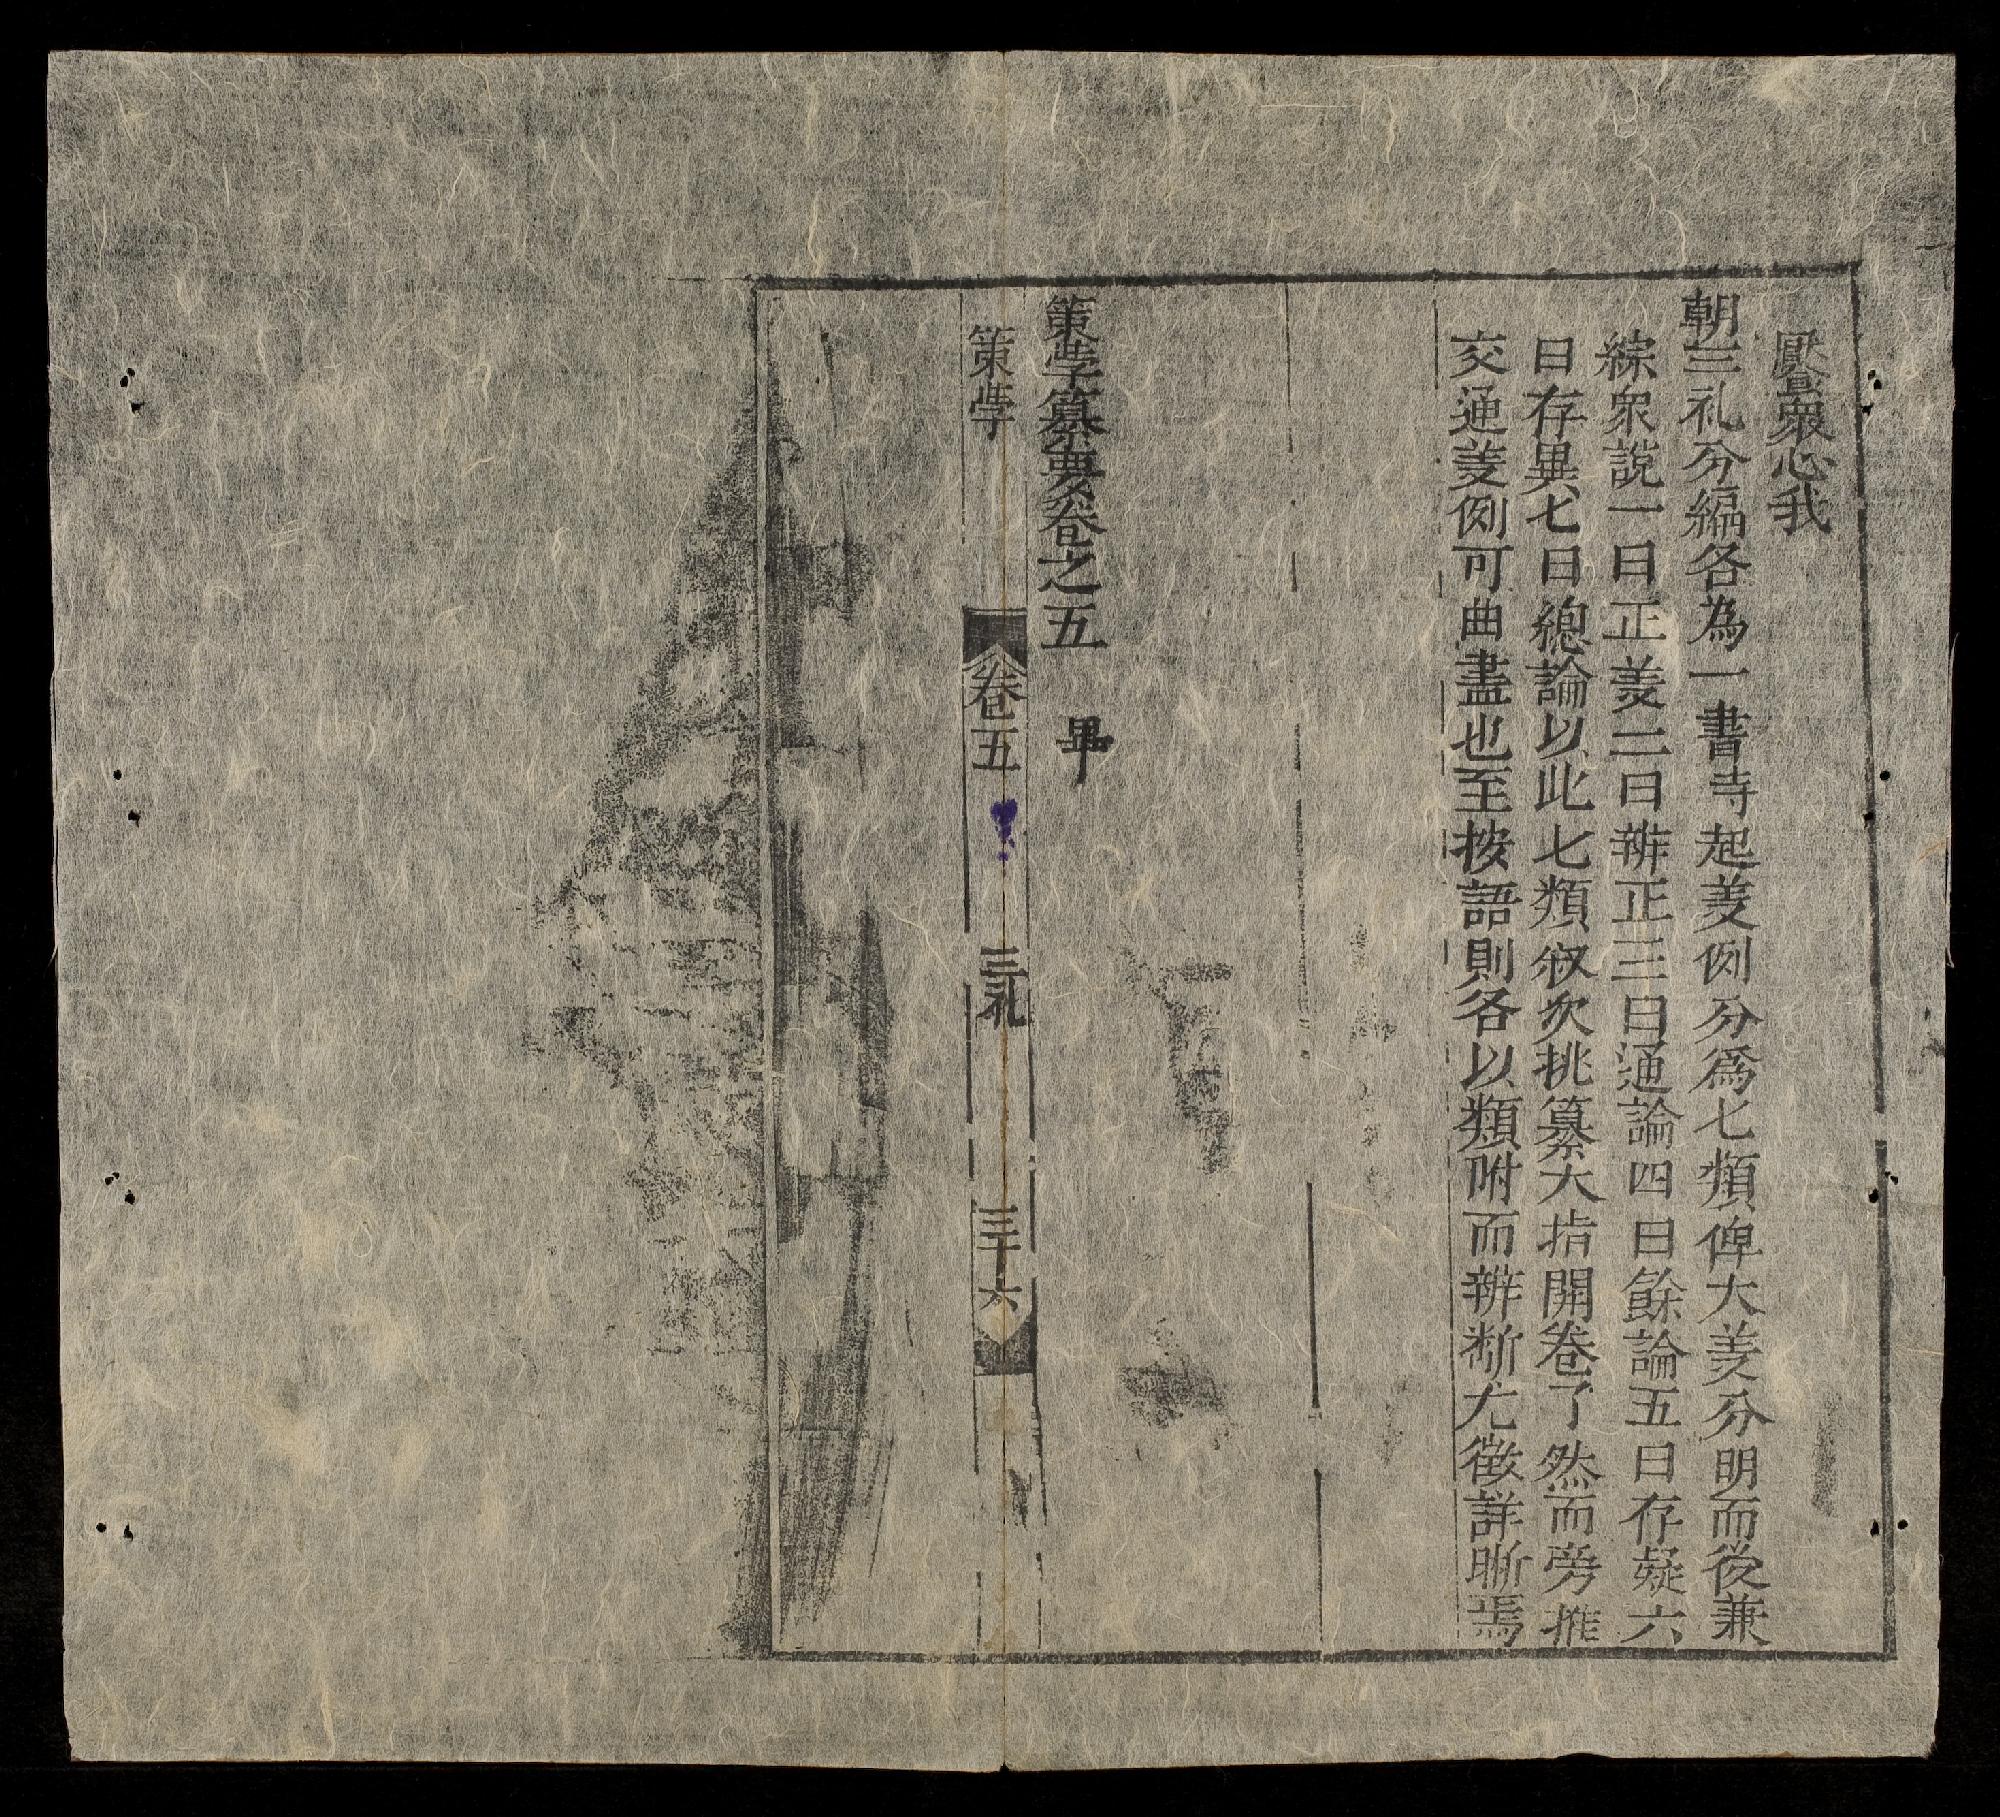 壓衆心我
朝三礼分編各為一書寺起义例分爲七類俾大义分明而後兼
綜衆說一曰正义二曰辨正三曰通論四曰餘論五曰存疑六
曰存異七曰總論以此七類叙次挑纂大指開卷了然而旁推
交通义例可曲盡也至按語則各以類附而辨断尤徵詳晣焉
策学纂要卷之五 畢
策学 卷五 三礼 三十六